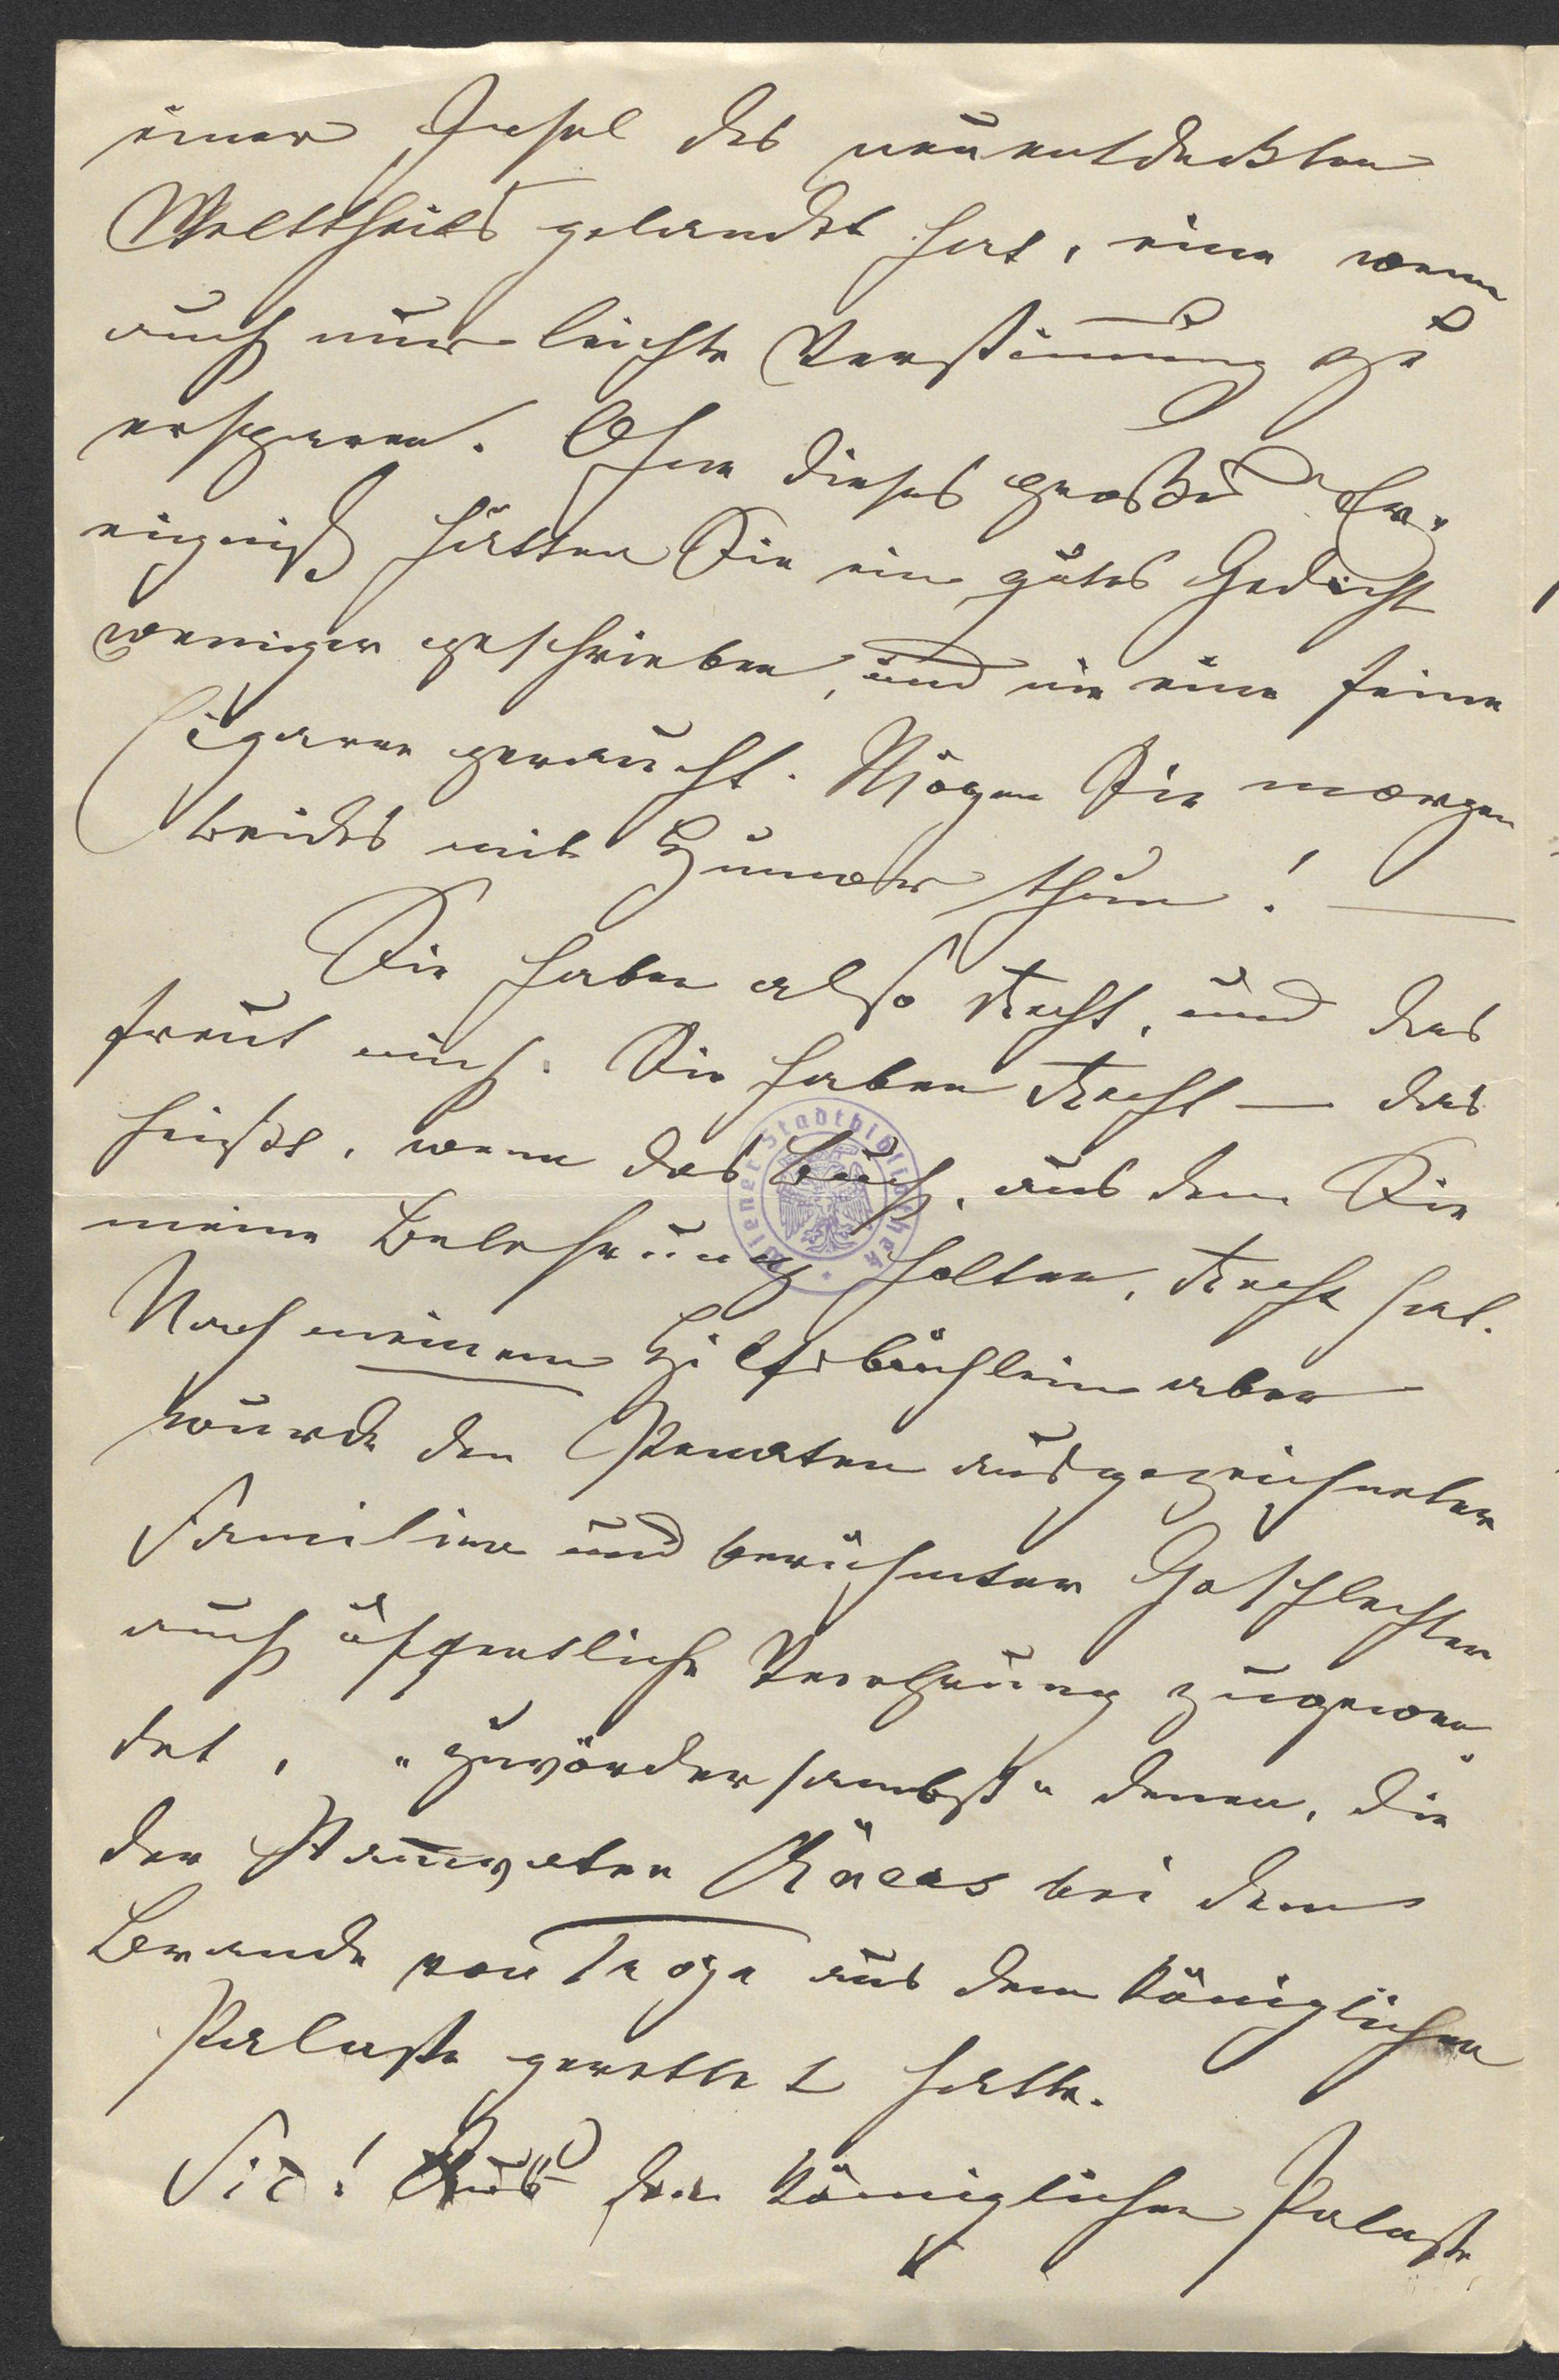 einer Insel des neuentdeckten
Welttheils gelandet hat, eine wenn
auch nur leichte Verstimmung zu
ersparen. Ohne dieses große Er-
eigniß hätten Sie ein gutes Gedicht
weniger geschrieben, und nie eine feine
Cigarre geraucht. Mögen Sie morgen
beides mit Humor thun! —
Sie haben also Recht, und das
freut mich. Sie haben Recht — das
heißt, wenn das Buch, aus dem Sie
meine Belehrung holten, Recht hat.
Nach meinem Hilfsbüchlein aber
wurde den Penaten ausgezeichneter
Familien und berühmter Geschlechter
auch öffentliche Verehrung zugewen-
det, „zuvördersambst“ denen, die
der Stammvater Äneas bei dem
Brande von Troja aus dem königlichen
Palaste gerettet hatte.
Sic! Aus dem königlichen Palaste
Wiener Stadtbibliothek